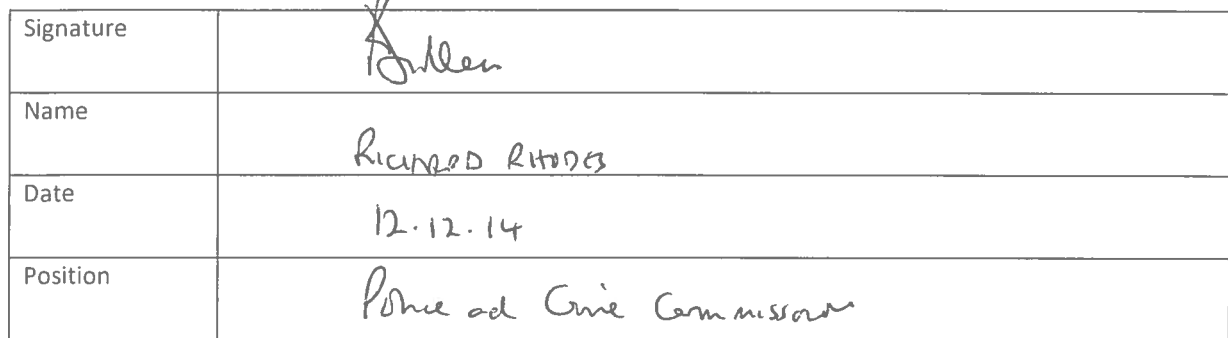 Signature
Name
RICHARD RHODES
Date
12.12.14
Position
Police and Crime Commissioner